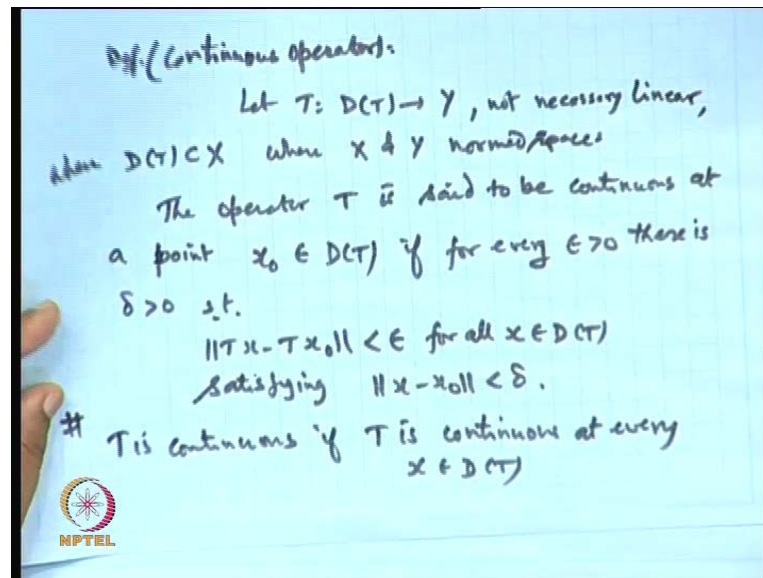 Def. (Continuous operator):
Let T: D(T) → Y, not necessary linear,
where D(T) ⊂ X where X & Y normed spaces
The operator T is said to be continuous at
a point x₀ ∈ D(T) if for every ϵ>0 there is
δ>0 s.t.
||Tx - Tx₀|| < ϵ for all x ∈ D(T)
satisfying ||x - x₀|| < δ.
# T is continuous if T is continuous at every
x ∈ D(T)
NPTEL